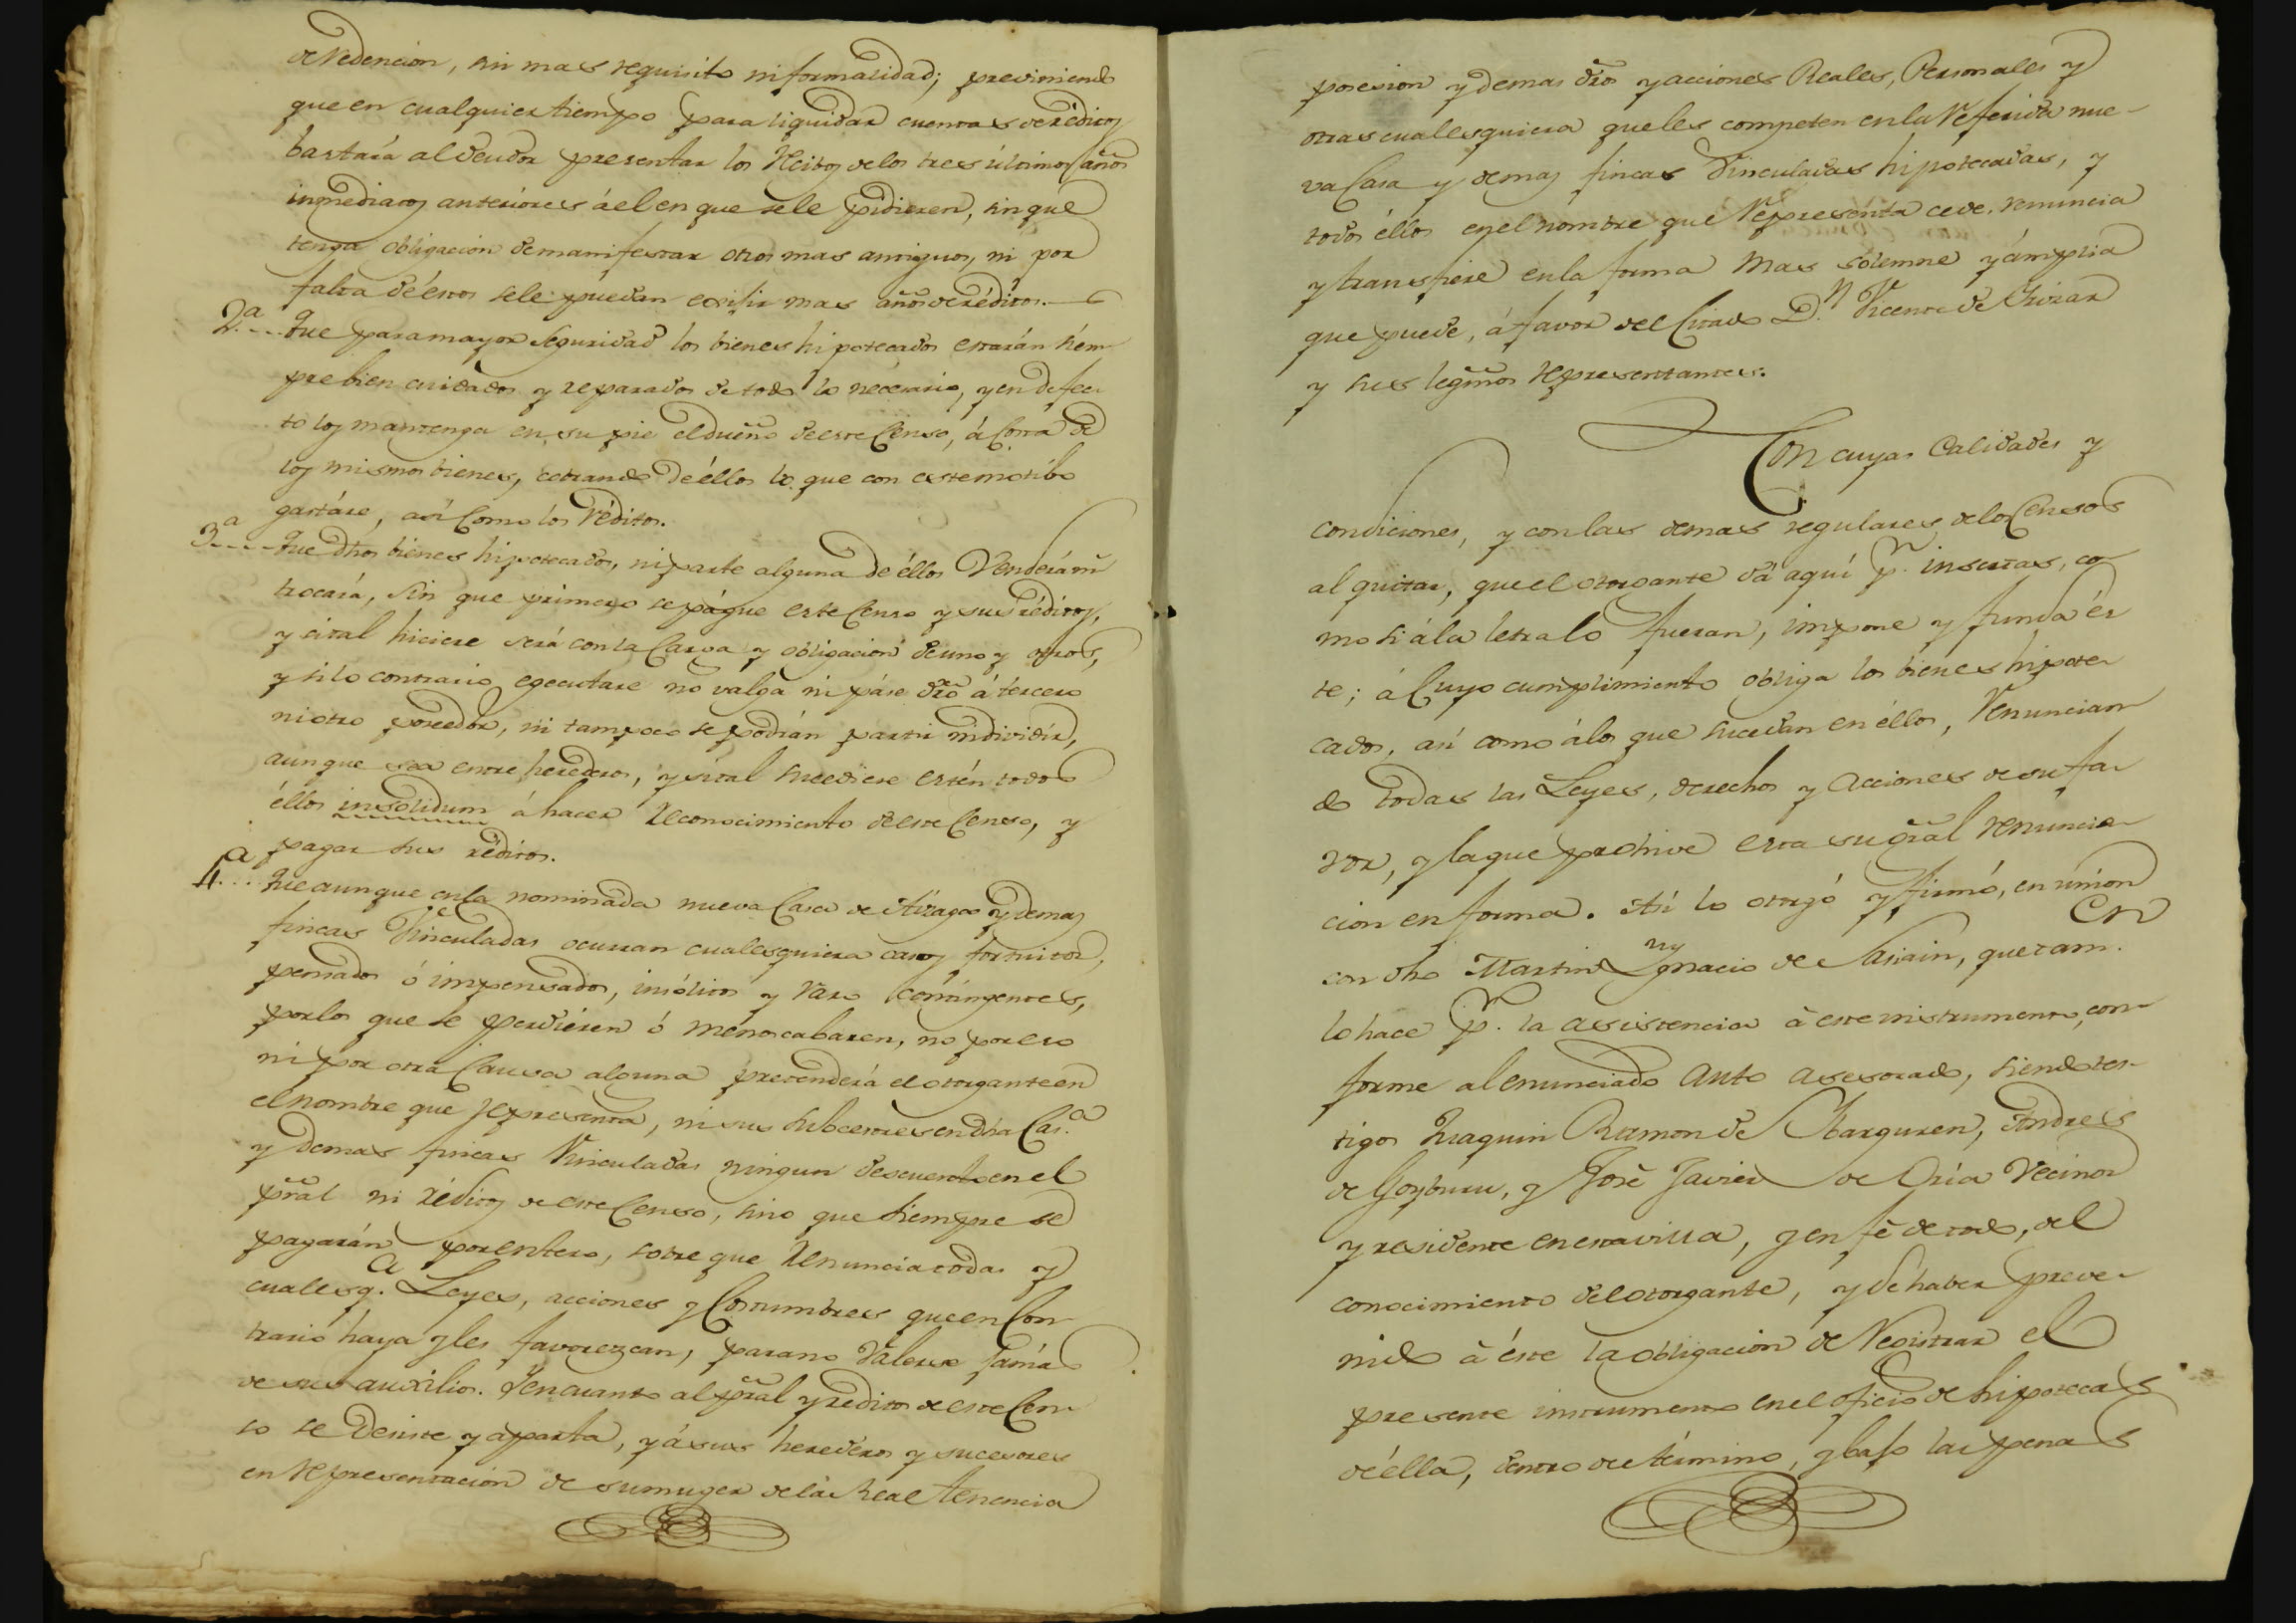 de redencion, sin mas requisito ni formalidad; previniendo
que en cualquier tiempo para liquidar cuentas de réditos
bastará al deudor presentar los recibos de los tres últimos años
inmediatos anterióres á el en que se le pidieren, sin que
tenga obligacion de manifestar otros mas antiguos, ni por
falta de éstos se le puedan exîjir mas años de réditos.
2.ª Que para mayor seguridad los bienes hipotecados estarán siem-
pre bien cuidados y reparados de todo lo necesario, y en defec-
to los mantenga en su pie el dueño de este Censo, á Costa de
los mismos bienes, cobrando de éllos lo que con este motibo
gastáre, así Como los réditos.
3ª Que dhos bienes hipotecados, ni parte alguna de éllos Venderá ni
trocará, Sin que primero se págue este Censo y sus réditos,
y si tal hiciere será con la Carga y obligacion de uno y otros,
y si lo contrario egecutare no valga ni páse dro á tercero
ni otro poseedor, ni tampoco se podrán partir ni dividir,
aunque sea entre herederos, y si tal sucediere estén todos
éllos insolidum á hacer reconocimiento de este Censo, y
pagar sus réditos.
4ª Que aunque en la nominada nueva Casa de Aizaga y demas
fincas Vinculadas ocurran cualesquiera casos fortuitos,
pensados ó impensados, insólitos y raro contingentes,
por los que se perdiéren ó menoscabaren, no por eso
ni por otra Causa alguna pretenderá el otorgante en
el nombre que representa, ni sus subcesores en dha Cas.ª
y demas fincas Vinculadas ningun descuento en el
pral ni réditos de este Censo, sino que siempre se
pagarán por entero, sobre que renuncia todas y
cualesq.ª Leyes, acciones y Costumbres que en Con-
trario haya y les favorezcan, para no valerse jamás
de sus auxîlios. Y en cuanto al pral y réditos de este Cen-
so se desiste y aparta, y á sus herederos y sucesores
en representacion de su muger de la real tenencia
posesion y demas dros y acciones Reales, Personales y
otras cualesquiera que les competen en la referida nue-
va Casa y demas fincas Vinculadas hipotecadas, y
todos éllos en el nombre que representa cede, renuncia
y transfiere en la forma mas solemne y ámplia
que puede, á favor del Citado D.n Vicente de
y sus legmos representantes.
Con cuyas Calidades y
condiciones, y con las demas regulares de los Censos
al quitar, que el otorgante dá aquí p.r insertas, co-
mo si á la letra lo fueran, impone y funda és-
te; á Cuyo cumplimiento obliga los bienes hipote-
cados, así como á los que sucedan en éllos, renuncian-
do todas las Leyes, derechos y acciones de su fa-
vor, y la que prohive esta su gral renuncia-
cion en forma. Así lo otorgó y firmó, en union
con dho Martin Ygnacio de Sasiain, que tam.en
lo hace p.r la asistencia á este instrumento, con-
forme al enunciado auto asesorado, siendo tes-
tigos Juaquin Ramon de Ybarguren, Andres
de Goyburu, y José Javier de Oria Vecinos
y residente en esta villa, y en fé de todo, del
conocimiento del otorgante, y de haber preve-
nido á éste la obligacion de registrar el
presente instrumento en el oficio de hipotecas
de élla, dentro del término, y bajo las penas